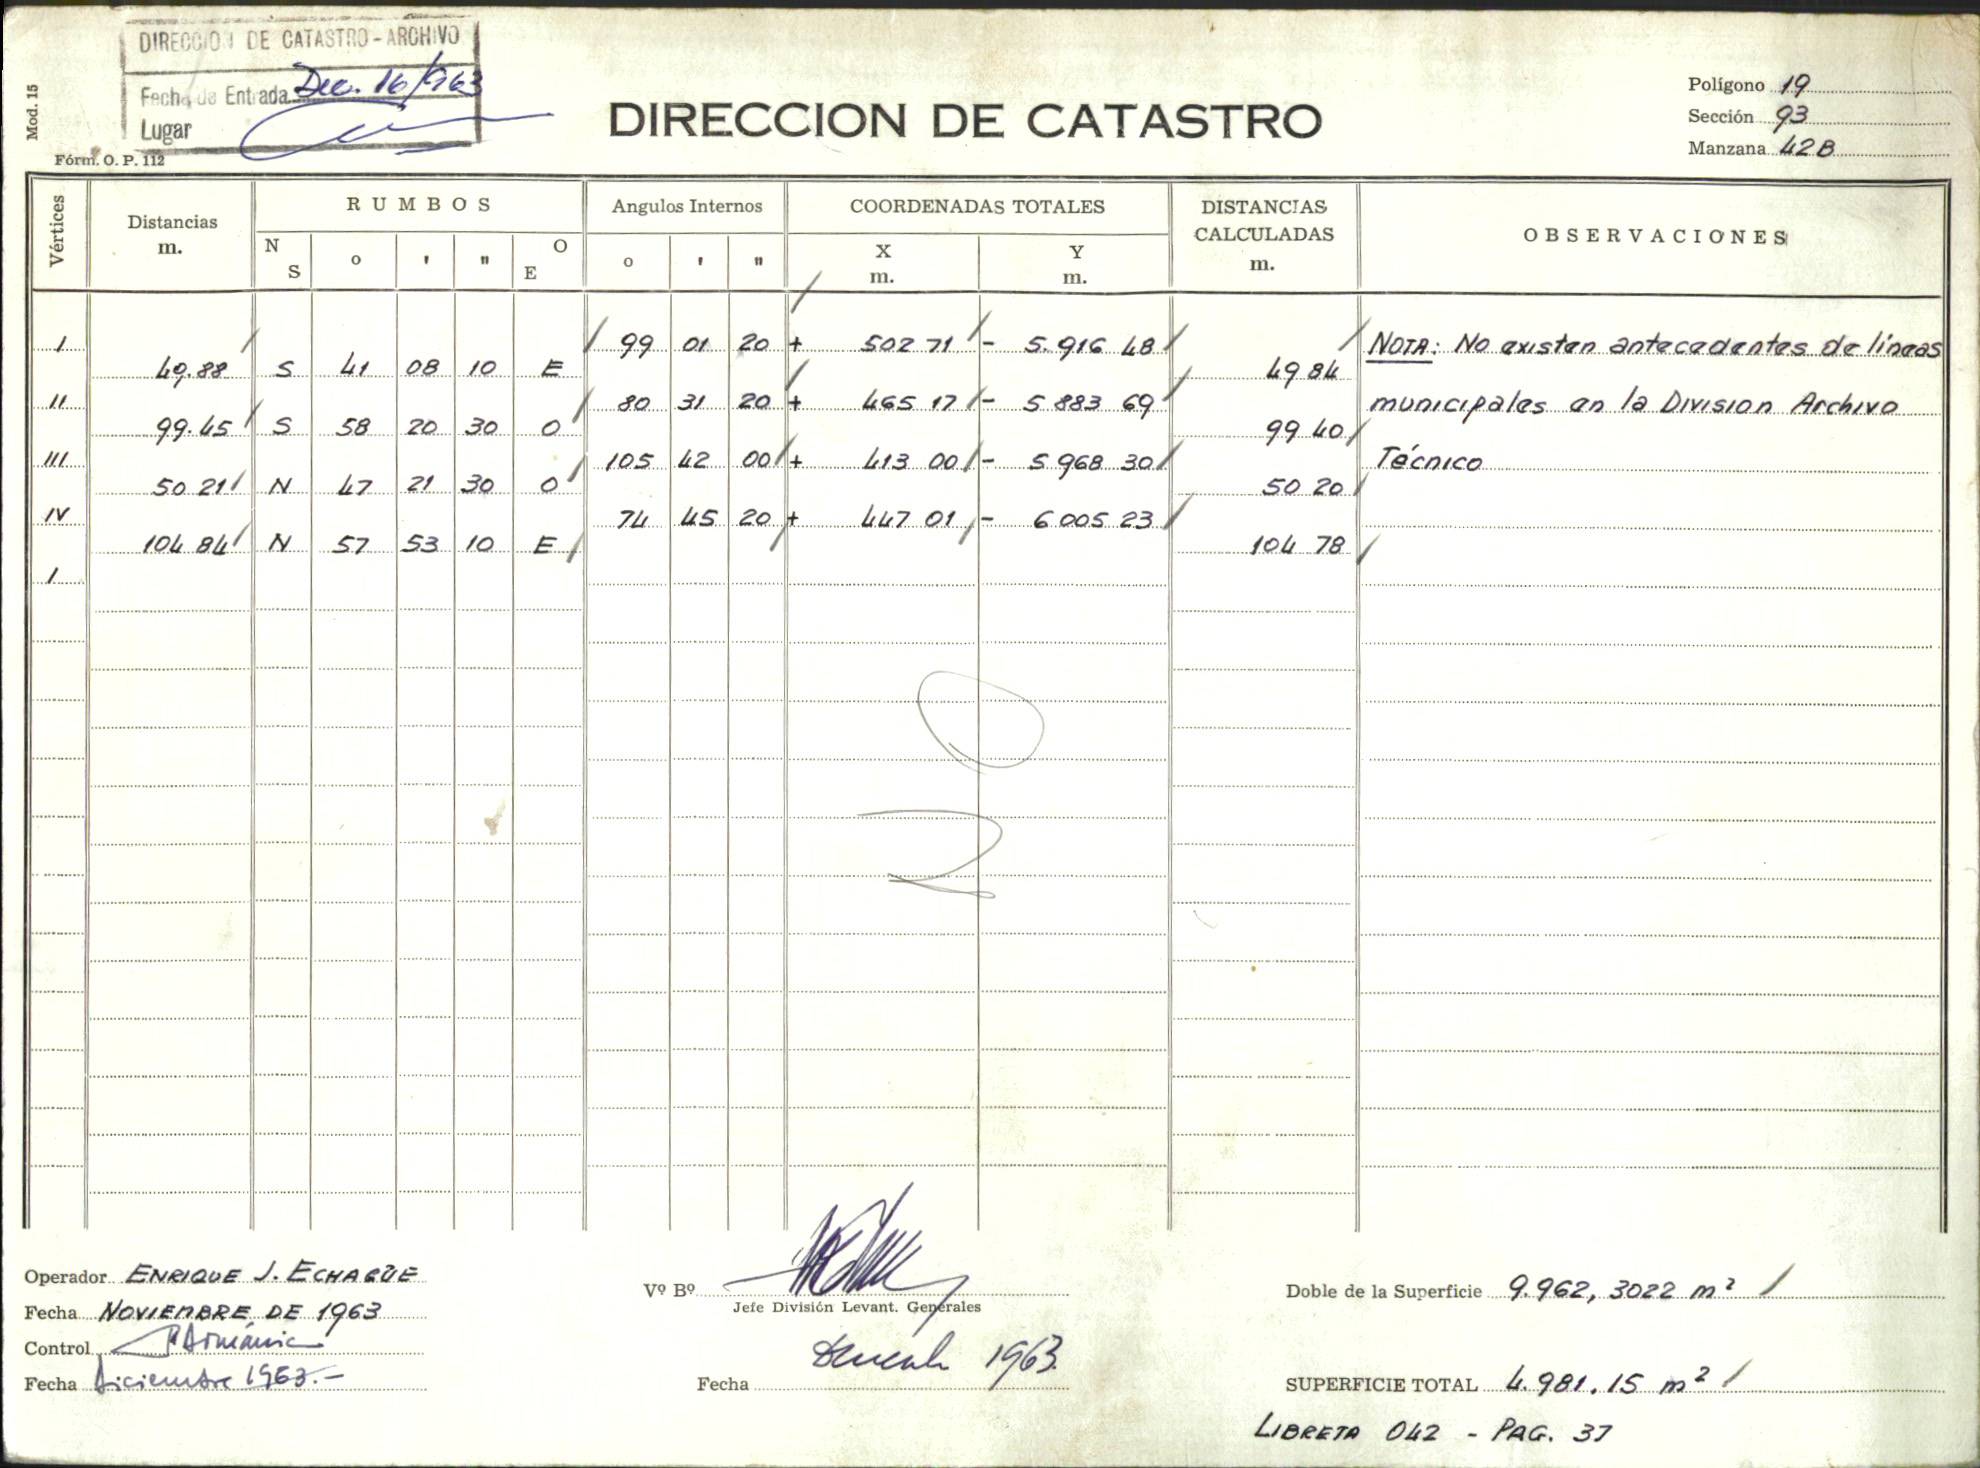 DIRECCION DE CATASTRO - ARCHIVO
Fecha de Entrada Dec. 16/963
Lugar
Mod. 15
Fórm. O. P. 112
DIRECCION DE CATASTRO
Polígono 19
Sección 93
Manzana 42B
Vértices
Distancias
m.
RUMBOS
N
S
o ' "
O
E
Angulos Internos
o ' "
COORDENADAS TOTALES
X
m.
Y
m.
DISTANCIAS
CALCULADAS
m.
OBSERVACIONES
I 99 01 20 + 502 71 - 5.916 48 NOTA: No existen antecedentes de líneas
49.88 S 41 08 10 E 49 84
II 80 31 20 + 465 17 - 5 883 69 municipales en la Division Archivo
99.45 S 58 20 30 O 99 40
III 105 42 00 + 413 00 - 5 968 30 Técnico
50 21 N 47 21 30 O 50 20
IV 74 45 20 + 447 01 - 6 005 23
104 84 N 57 53 10 E 104 78
I
2
Operador ENRIQUE J. ECHAGÜE
Fecha NOVIEMBRE DE 1963
Control
Fecha Diciembre 1963.-
Vº Bº
Jefe División Levant. Generales
Fecha 1963.
Doble de la Superficie 9.962,3022 m²
SUPERFICIE TOTAL 4.981.15 m²
LIBRETA 042 - PAG. 37